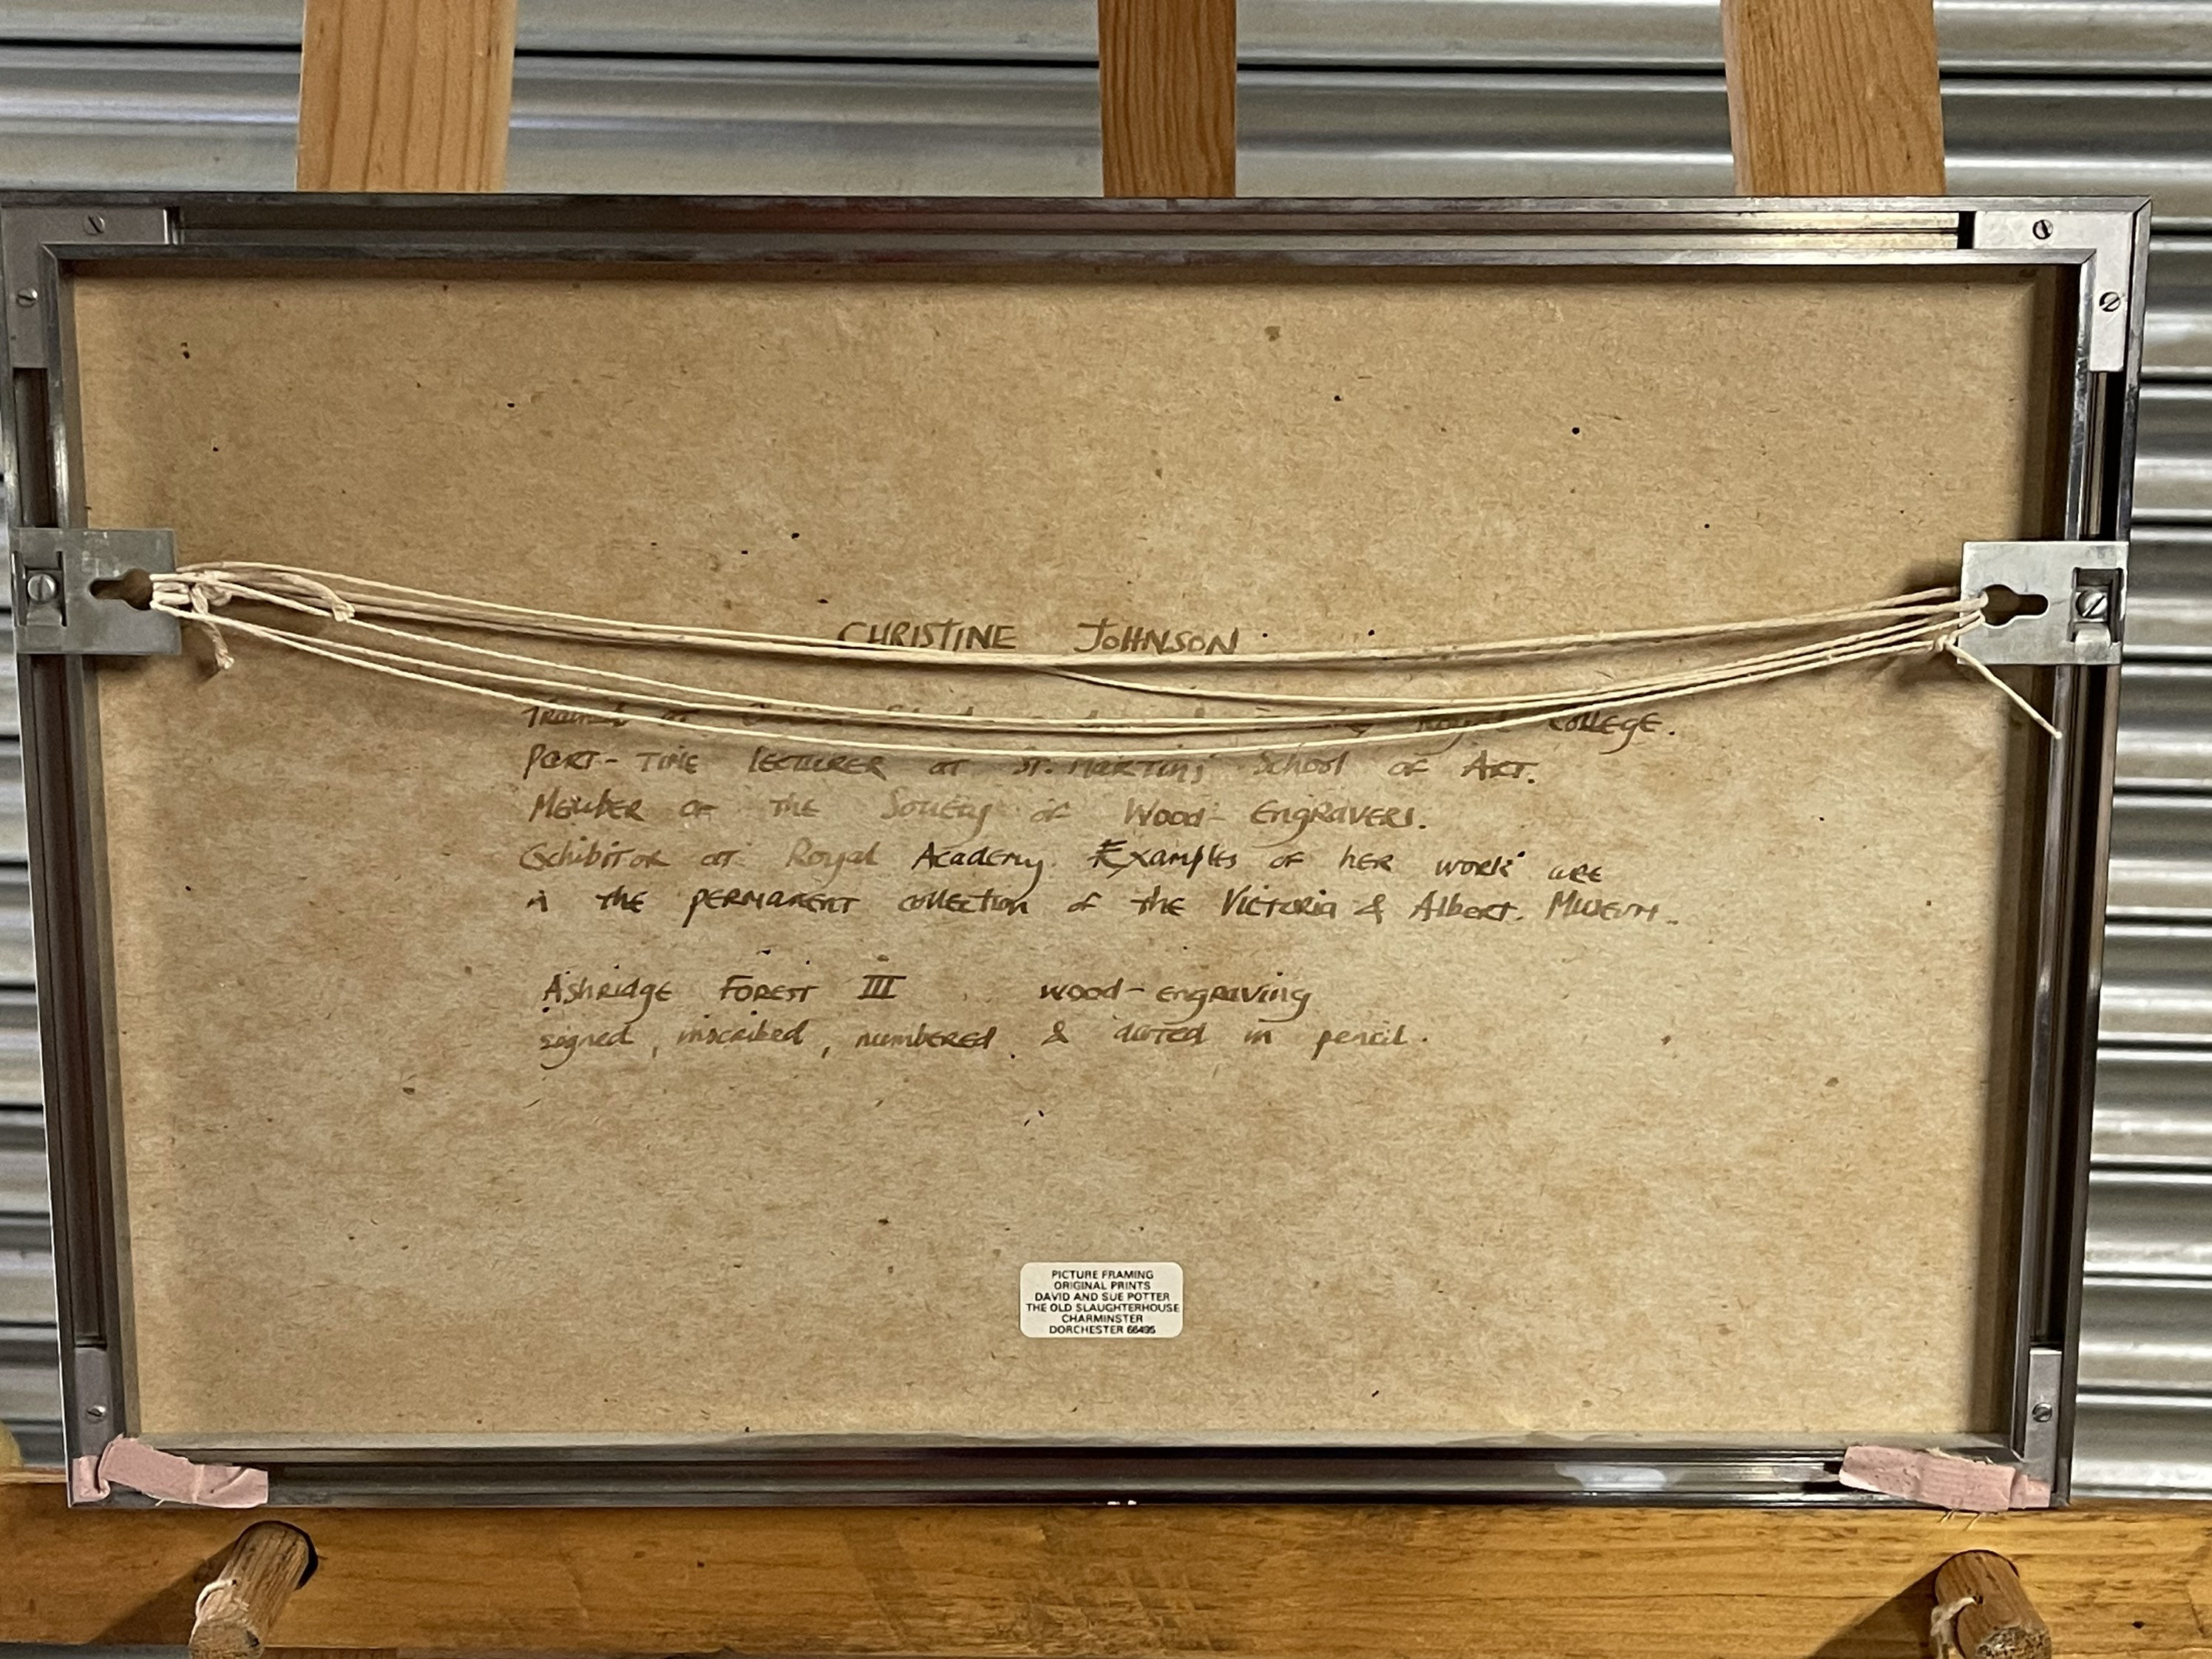 CHRISTINE JOHNSON
Trained at Royal College.
Part-time lecturer at St. Martins' School of Art.
Member of the Society of Wood-Engravers.
Exhibitor at Royal Academy. Examples of her work are
in the permanent collection of the Victoria & Albert. Museum.
Ashridge Forest III wood-engraving
signed, inscribed, numbered & dated in pencil.
PICTURE FRAMING
ORIGINAL PRINTS
DAVID AND SUE POTTER
THE OLD SLAUGHTERHOUSE
CHARMINSTER
DORCHESTER 66495